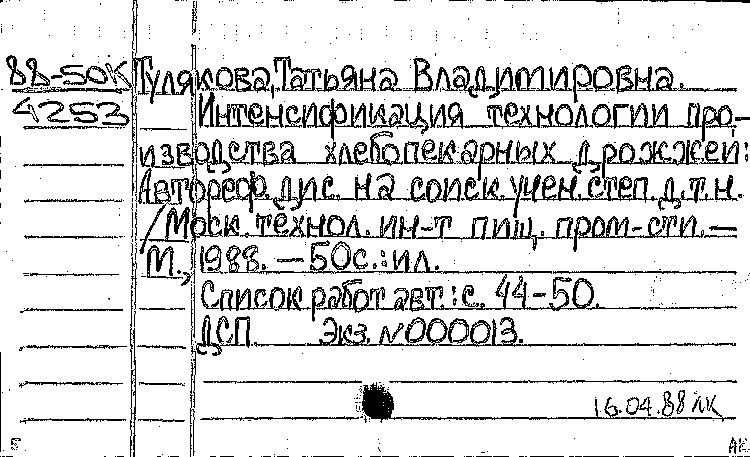 88-50К Тулякова, Татьяна Владимировна.
4253 Интенсификация технологии про-
изводства хлебопекарных дрожжей:
Автореф. дис. на соиск. учен. степ. д.т.н.
/Моск. технол. ин-т пищ. пром-сти. —
М., 1988. — 50 с.: ил.
Список работ авт.: с. 44-50.
ДСП. Экз. N 000013.
16.04.88 лк
Б АК